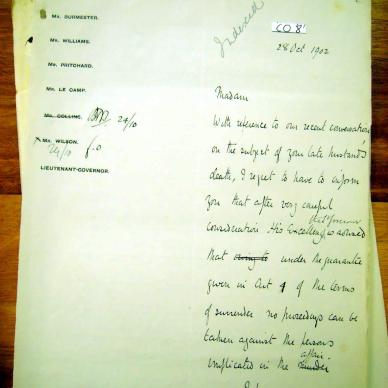 Indexed
CO 8'
28 Oct 1902
MR. BURMESTER.
MR. WILLIAMS.
MR. PRITCHARD.
MR. LE CAMP.
MR. COLLINS. 24/10
MR. WILSON.
24/10
LIEUTENANT-GOVERNOR.
Madam
With reference to our recent conversation
on the subject of your late husband's
death, I regret to have to inform
you that after very careful
consideration His Excellency is advised
that owing to under the guarantee
given in Art 4 of the terms
of surrender no proceedings can be
taken against the persons
implicated in the murder
affair.